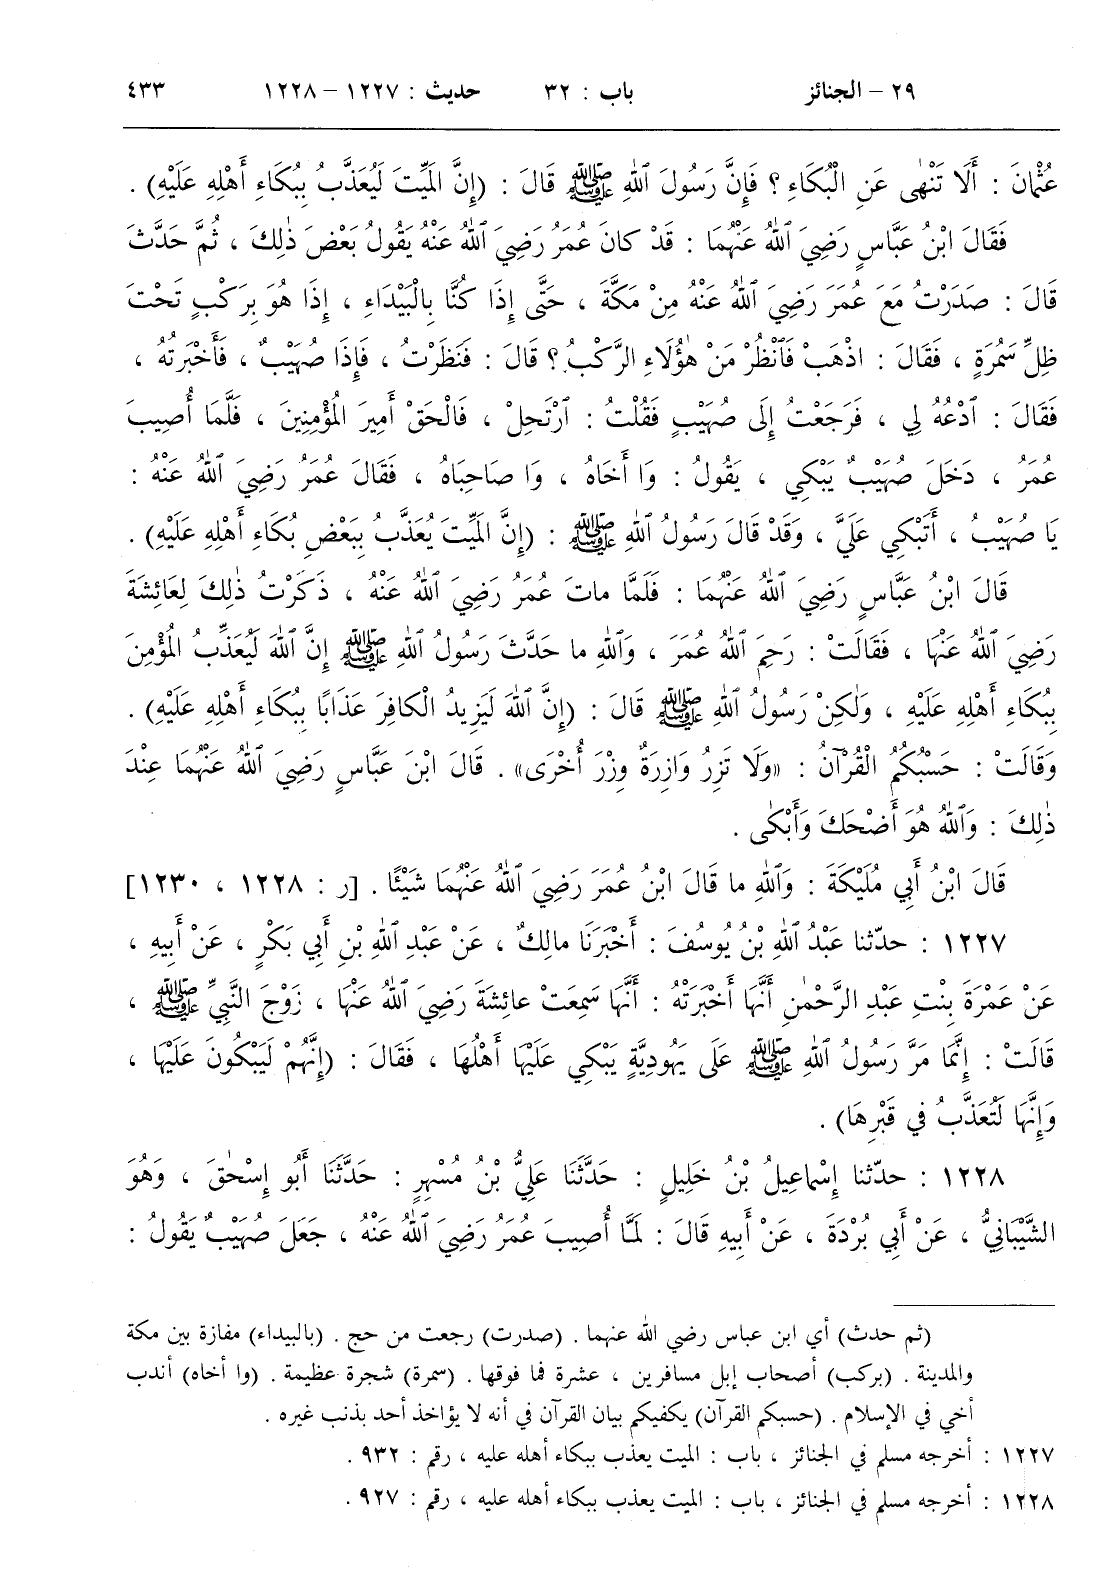 ٢٩ – الجنائز باب : ٣٢ حديث : ١٢٢٧ – ١٢٢٨ ٤٣٣
عُثْمَانَ : أَلَا تَنْهٰى عَنِ الْبُكَاءِ ؟ فَإِنَّ رَسُولَ ٱللهِ ﷺ قَالَ : (إِنَّ المَيِّتَ لَيُعَذَّبُ بِبُكَاءِ أَهْلِهِ عَلَيْهِ) .
فَقَالَ ابْنُ عَبَّاسٍ رَضِيَ ٱللهُ عَنْهُمَا : قَدْ كانَ عُمَرُ رَضِيَ ٱللهُ عَنْهُ يَقُولُ بَعْضَ ذٰلِكَ ، ثُمَّ حَدَّثَ
قَالَ : صَدَرْتُ مَعَ عُمَرَ رَضِيَ ٱللهُ عَنْهُ مِنْ مَكَّةَ ، حَتَّى إِذَا كُنَّا بِالْبَيْدَاءِ ، إِذَا هُوَ بِرَكْبٍ تَحْتَ
ظِلِّ سَمُرَةٍ ، فَقَالَ : اذْهَبْ فَٱنْظُرْ مَنْ هٰؤُلَاءِ الرَّكْبُ ؟ قَالَ : فَنَظَرْتُ ، فَإِذَا صُهَيْبٌ ، فَأَخْبَرْتُهُ ،
فَقَالَ : ٱدْعُهُ لِي ، فَرَجَعْتُ إِلَى صُهَيْبٍ فَقُلْتُ : ٱرْتَحِلْ ، فَالْحَقْ أَمِيرَ المُؤْمِنِينَ ، فَلَمَّا أُصِيبَ
عُمَرُ ، دَخَلَ صُهَيْبٌ يَبْكِي ، يَقُولُ : وَا أَخَاهُ ، وَا صَاحِبَاهُ ، فَقَالَ عُمَرُ رَضِيَ ٱللهُ عَنْهُ :
يَا صُهَيْبُ ، أَتَبْكِي عَلَيَّ ، وَقَدْ قالَ رَسُولُ ٱللهِ ﷺ : (إِنَّ المَيِّتَ يُعَذَّبُ بِبَعْضِ بُكَاءِ أَهْلِهِ عَلَيْهِ) .
قَالَ ابْنُ عَبَّاسٍ رَضِيَ ٱللهُ عَنْهُمَا : فَلَمَّا ماتَ عُمَرُ رَضِيَ ٱللهُ عَنْهُ ، ذَكَرْتُ ذٰلِكَ لِعَائِشَةَ
رَضِيَ ٱللهُ عَنْهَا ، فَقَالَتْ : رَحِمَ ٱللهُ عُمَرَ ، وَٱللهِ ما حَدَّثَ رَسُولُ ٱللهِ ﷺ إِنَّ ٱللهَ لَيُعَذِّبُ المُؤْمِنَ
بِبُكَاءِ أَهْلِهِ عَلَيْهِ ، وَلٰكِنْ رَسُولُ ٱللهِ ﷺ قَالَ : (إِنَّ ٱللهَ لَيَزِيدُ الْكافِرَ عَذَابًا بِبُكَاءِ أَهْلِهِ عَلَيْهِ) .
وَقَالَتْ : حَسْبُكُمُ الْقُرْآنُ : «وَلَا تَزِرُ وَازِرَةٌ وِزْرَ أُخْرَى» . قَالَ ابْنُ عَبَّاسٍ رَضِيَ ٱللهُ عَنْهُمَا عِنْدَ
ذٰلِكَ : وَٱللهُ هُوَ أَضْحَكَ وَأَبْكٰى .
قَالَ ابْنُ أَبِي مُلَيْكَةَ : وَٱللهِ ما قَالَ ابْنُ عُمَرَ رَضِيَ ٱللهُ عَنْهُمَا شَيْئًا . [ر : ١٢٢٨ ، ١٢٣٠]
١٢٢٧ : حدّثنا عَبْدُ ٱللهِ بْنُ يُوسُفَ : أَخْبَرَنَا مالِكٌ ، عَنْ عَبْدِ ٱللهِ بْنِ أَبِي بَكْرٍ ، عَنْ أَبِيهِ ،
عَنْ عَمْرَةَ بِنْتِ عَبْدِ الرَّحْمٰنِ أَنَّهَا أَخْبَرَتْهُ : أَنَّهَا سَمِعَتْ عائِشَةَ رَضِيَ ٱللهُ عَنْهَا ، زَوْجَ النَّبِيِّ ﷺ ،
قَالَتْ : إِنَّمَا مَرَّ رَسُولُ ٱللهِ ﷺ عَلَى يَهُودِيَّةٍ يَبْكِي عَلَيْهَا أَهْلُهَا ، فَقَالَ : (إِنَّهُمْ لَيَبْكُونَ عَلَيْهَا ،
وَإِنَّهَا لَتُعَذَّبُ في قَبْرِهَا) .
١٢٢٨ : حدّثنا إِسْماعِيلُ بْنُ خَلِيلٍ : حَدَّثَنَا عَلِيُّ بْنُ مُسْهِرٍ : حَدَّثَنَا أَبُو إِسْحٰقَ ، وَهُوَ
الشَّيْبَانِيُّ ، عَنْ أَبِي بُرْدَةَ ، عَنْ أَبِيهِ قَالَ : لَمَّا أُصِيبَ عُمَرُ رَضِيَ ٱللهُ عَنْهُ ، جَعَلَ صُهَيْبٌ يَقُولُ :
(ثم حدث) أي ابن عباس رضي الله عنهما . (صدرت) رجعت من حج . (بالبيداء) مفازة بين مكة
والمدينة . (بركب) أصحاب إبل مسافرين ، عشرة فما فوقها . (سمرة) شجرة عظيمة . (وا أخاه) أندب
أخي في الإسلام . (حسبكم القرآن) يكفيكم بيان القرآن في أنه لا يؤاخذ أحد بذنب غيره .
١٢٢٧ : أخرجه مسلم في الجنائز ، باب : الميت يعذب ببكاء أهله عليه ، رقم : ٩٣٢ .
١٢٢٨ : أخرجه مسلم في الجنائز ، باب : الميت يعذب ببكاء أهله عليه ، رقم : ٩٢٧ .